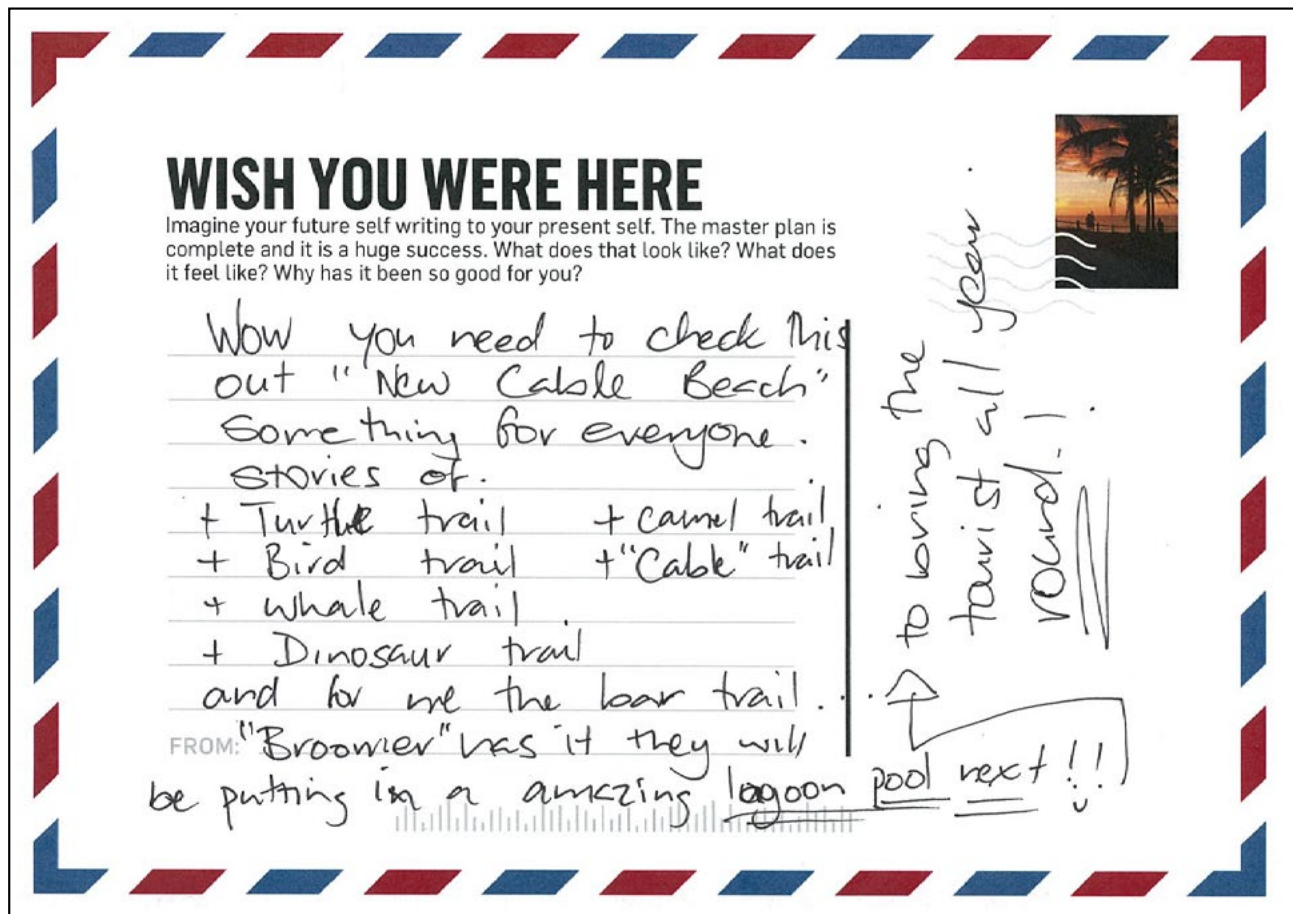 WISH YOU WERE HERE
Imagine your future self writing to your present self. The master plan is
complete and it is a huge success. What does that look like? What does
it feel like? Why has it been so good for you?
Wow you need to check this
out "New Cable Beach"
Something for everyone.
stories of.
+ Turtle trail + camel trail
+ Bird trail + "Cable" trail
+ whale trail
+ Dinosaur trail
and for me the bar trail..
FROM: "Broomier" has it they will
be putting in a amazing lagoon pool next!!!
to bring the
tourist all year
round!